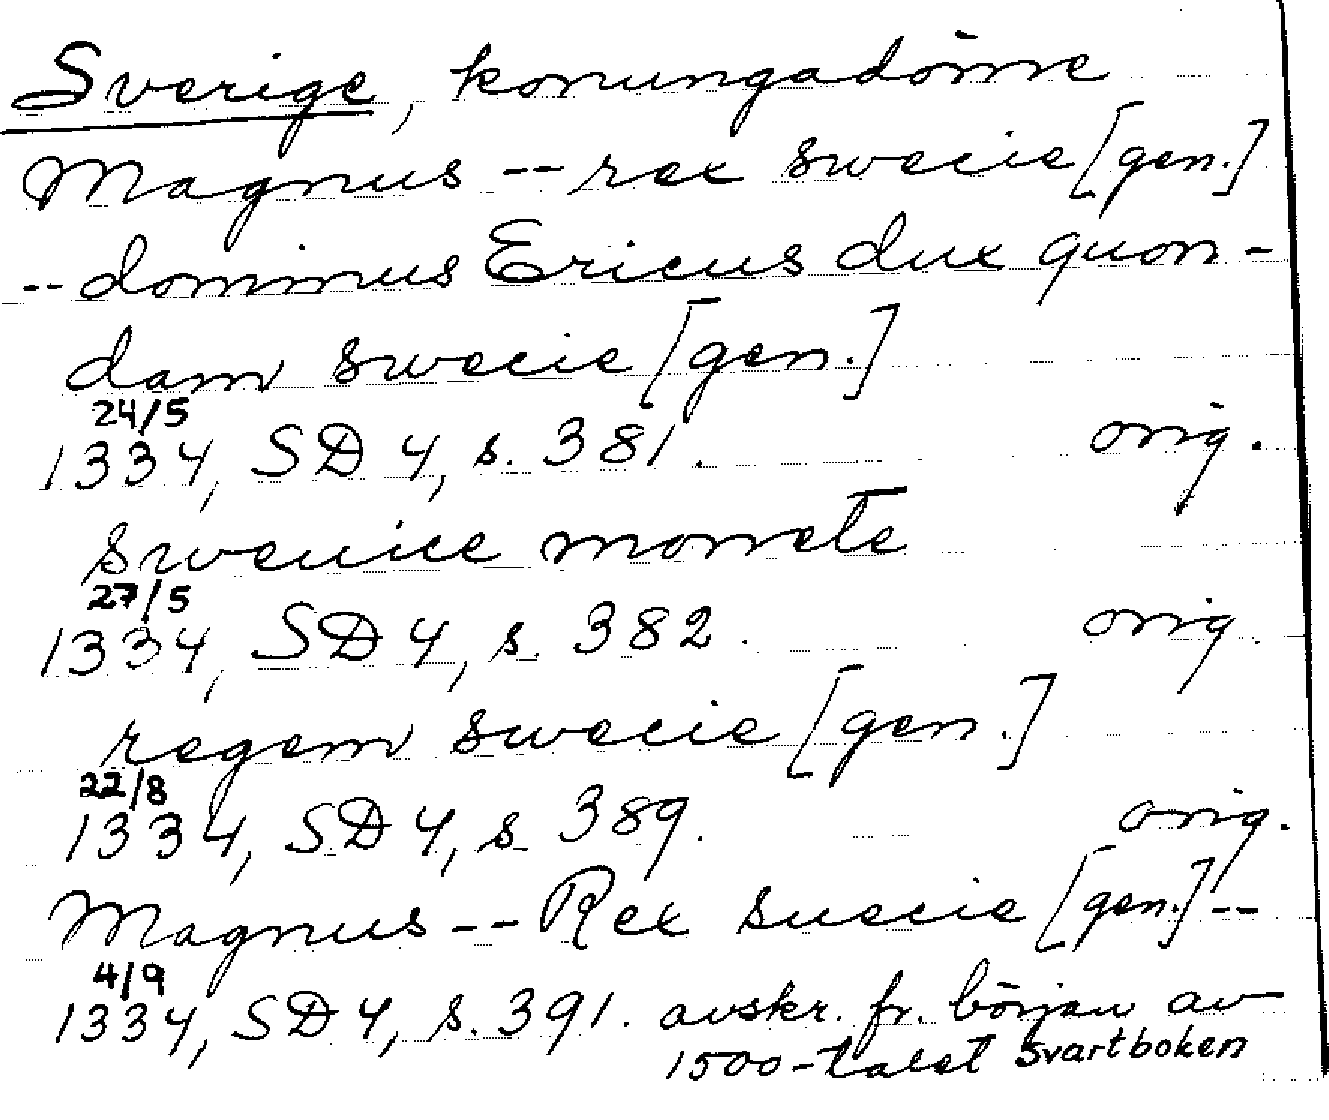 Sverige, konungadöme
Magnus -- rex swecie [gen.]
-- dominus Ericus dux quon-
dam swecie [gen.]
24/5
1334, SD 4, s. 381. orig.
swenice monete
27/5
1334, SD 4, s. 382. orig.
regem swecie [gen.]
22/8
1334, SD 4, s. 389. orig.
Magnus -- Rex suecie [gen.] --
4/9
1334, SD 4, s. 391. avskr. fr. början av
1500-talet Svartboken